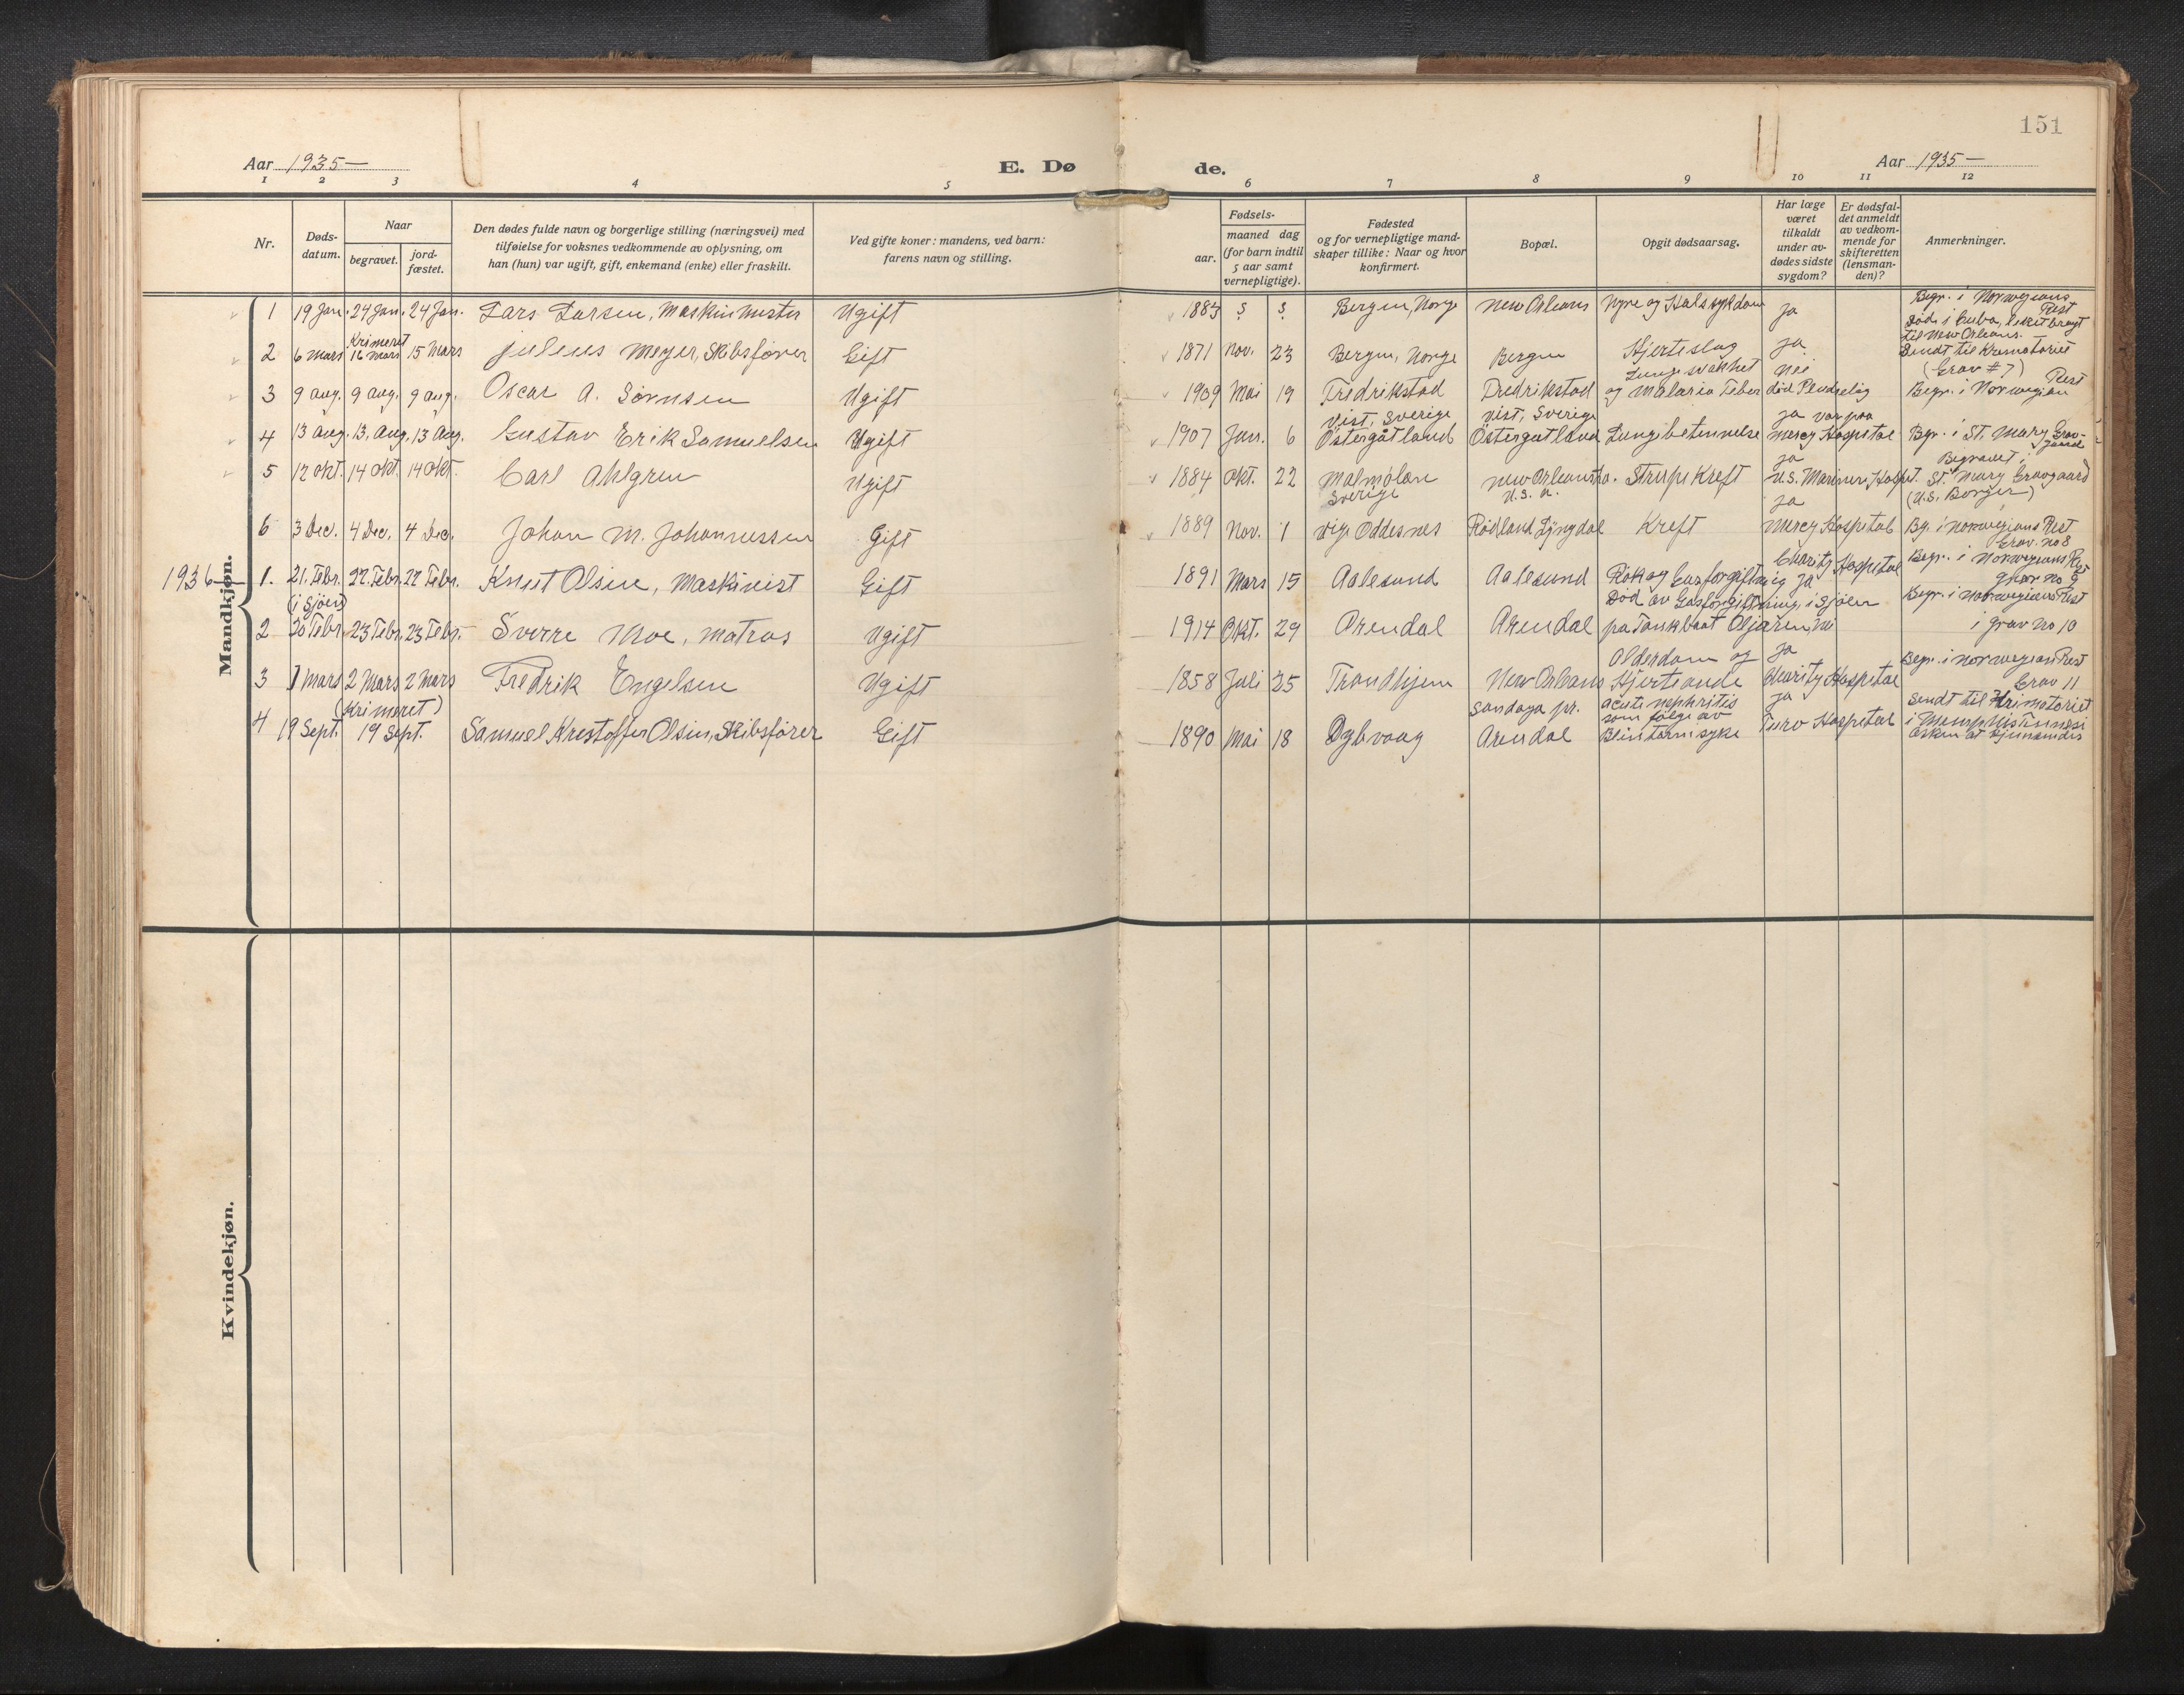 151
Aar 1935—
E. Dø de.
Aar 1935—
1 2 3 4 5 6 7 8 9 10 11 12
Nr.
Døds-
datum.
Naar
begravet.
jord-
fæstet.
Den dødes fulde navn og borgerlige stilling (næringsvei) med
tilføielse for voksnes vedkommende av oplysning, om
han (hun) var ugift, gift, enkemand (enke) eller fraskilt.
Ved gifte koner: mandens, ved barn:
farens navn og stilling.
Fødsels-
aar.
maaned dag
(for barn indtil
5 aar samt
vernepligtige).
Fødested
og for vernepligtige mand-
skaper tillike: Naar og hvor
konfirmert.
Bopæl.
Opgit dødsaarsag.
Har læge
været
tilkaldt
under av-
dødes sidste
sygdom?
Er dødsfal-
det anmeldt
av vedkom-
mende for
skifteretten
(lensman-
den)?
Anmerkninger.
Mandkjøn.
1 19 Jan. 24 Jan. 24 Jan. Lars Larsen, Maskinmester Ugift 1883 Bergen, Norge New Orleans Nyre og Halssykdom Ja Begr. i Norwegians
Rest
2 6 Mars Krimeret
16 Mars 15 Mars Julius Meyer, Skibsfører Gift 1871 Nov. 23 Bergen, Norge Bergen Hjerteslag Ja Død i Cuba, liket bragt
til New Orleans.
Sendt til Krematoriet
3 9 Aug. 9 Aug. 9 Aug. Oscar A. Sørnsen Ugift 1909 Mai 19 Fredrikstad Fredrikstad Lungesvakhet
og Malaria Feber Nei
død Pludselig (Grav #7)
Begr. i Norwegian Rest
4 13 Aug. 13. Aug. 13 Aug. Gustav Erik Samuelsen Ugift 1907 Jan. 6 Vist, Sverige
Östergåtland Vist, Sverige
Östergatland Lungebetennelse Ja var paa
Mercy Hospital Begr. i St. Mary Grav-
gaard
5 12 Okt. 14 Okt. 14 Okt. Carl Ahlgren Ugift 1884 Okt. 22 Malmølan
Sverige New Orleans La.
U.S.A. Strupe Kreft Ja
U.S. Marine Hospt. Begravet i
St. Mary Gravgaard
(U.S. Borger)
6 3 Dec. 4 Dec. 4 Dec. Johan M. Johannessen Gift 1889 Nov. 1 Vig. Oddesnes Rødland Lyngdal Kreft Ja
Mercy Hospital Bg. i Norwegians Rest
Grav. no 8
1936— 1. 21. Febr. 22. Febr. 22 Febr. Knut Olsen, Maskinist Gift 1891 Mars 15 Aalesund Aalesund Røk og Gasforgiftning Charity Hospital
Ja Begr. i Norwegians Rest
grav no 9
2 (i Sjøen)
20 Febr. 23 Febr. 23 Febr. Sverre Moe, Matros Ugift 1914 Okt. 29 Arendal Arendal Død av Gasforgiftning, i Sjøen
paa Tankbaat Oljaren, Nei Begr. i Norwegians Rest
i grav no 10
3 1 Mars 2 Mars 2 Mars Fredrik Engelsen Ugift 1858 Juli 25 Trondhjem New Orleans Alderdom og
Hjertionde Ja
Charity Hospital Begr. i Norwegian Rest
Grav 11
4 19 Sept. (Krimeret)
19 Sept. Samuel Krestoffer Olsen, Skibsfører Gift 1890 Mai 18 Dybvaag Sandøya pr.
Arendal Acute nephritis
som følge av
Blintarmsyke Ja
Turo Hospital Sendt til Krimatoriet
i Memphis Tennesi
Asken at hjemsendes
Kvindekjøn.